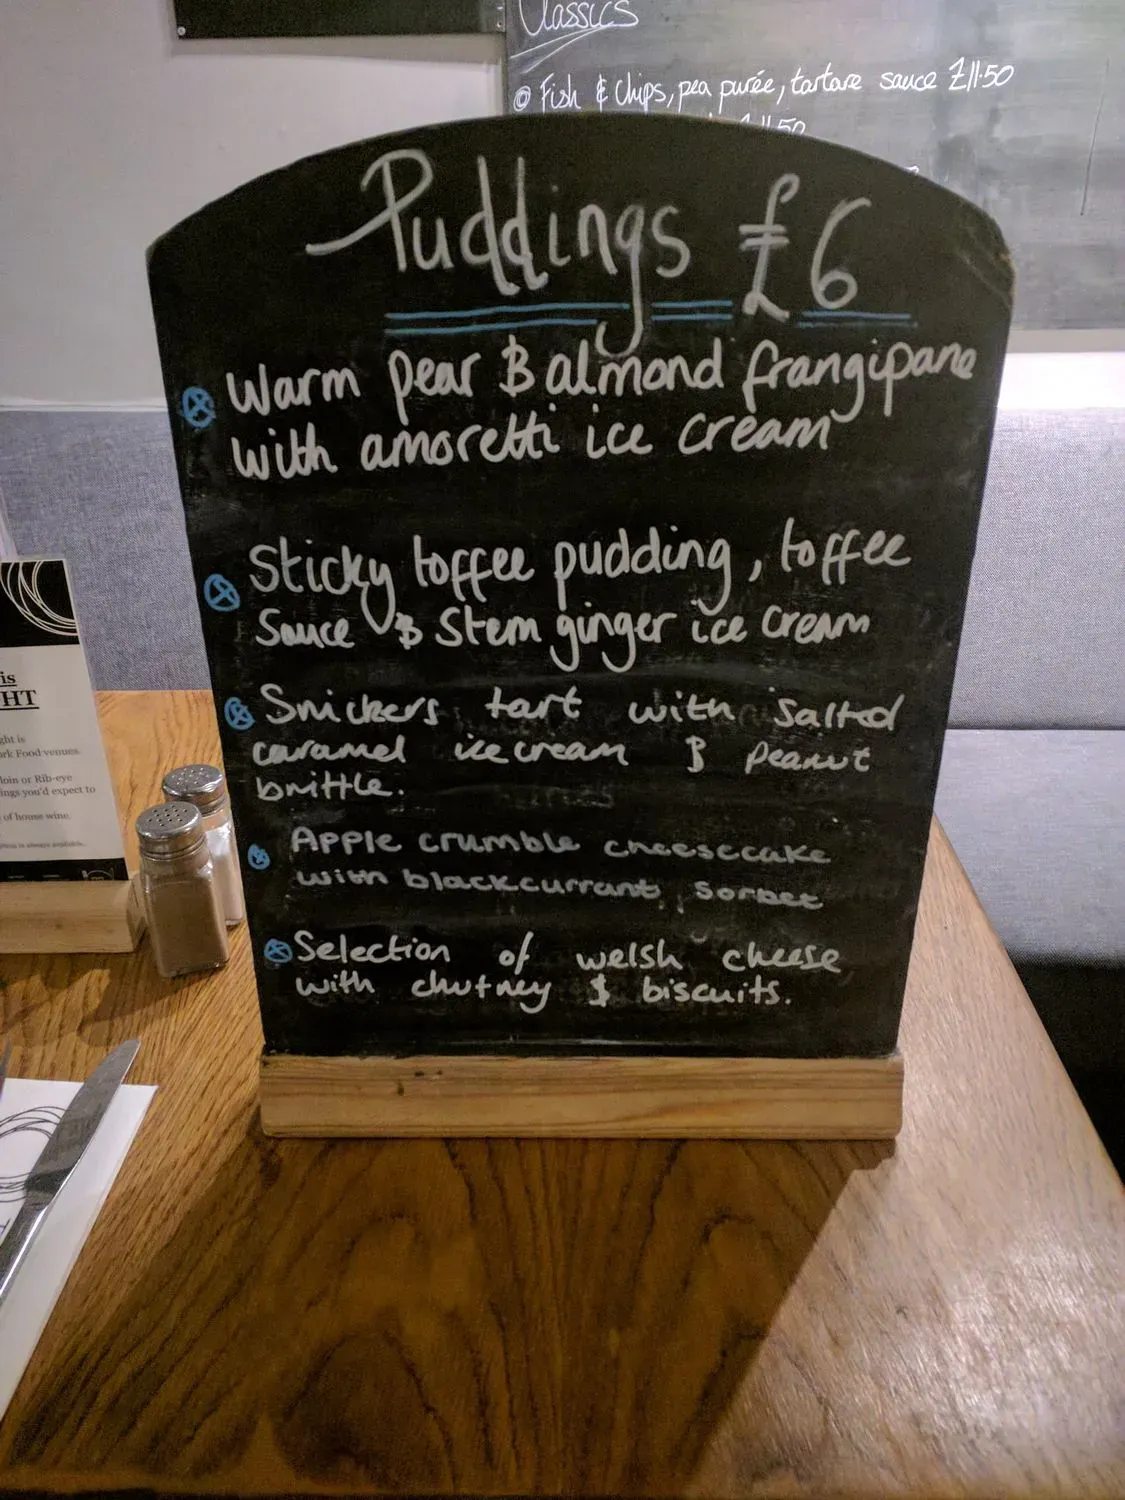 Classics
Fish & Chips, pea purée, tartare sauce £11.50
£11.50
Puddings £6
Warm pear & almond frangipane
with amoretti ice cream
Sticky toffee pudding, toffee
Sauce & Stem ginger ice cream
Snickers tart with Salted
caramel ice cream & Peanut
brittle.
Apple crumble cheesecake
with blackcurrant sorbet
Selection of welsh cheese
with chutney & biscuits.
is
HT
ght is
ork Food venues.
loin or Rib-eye
ings you'd expect to
of house wine.
is always available.